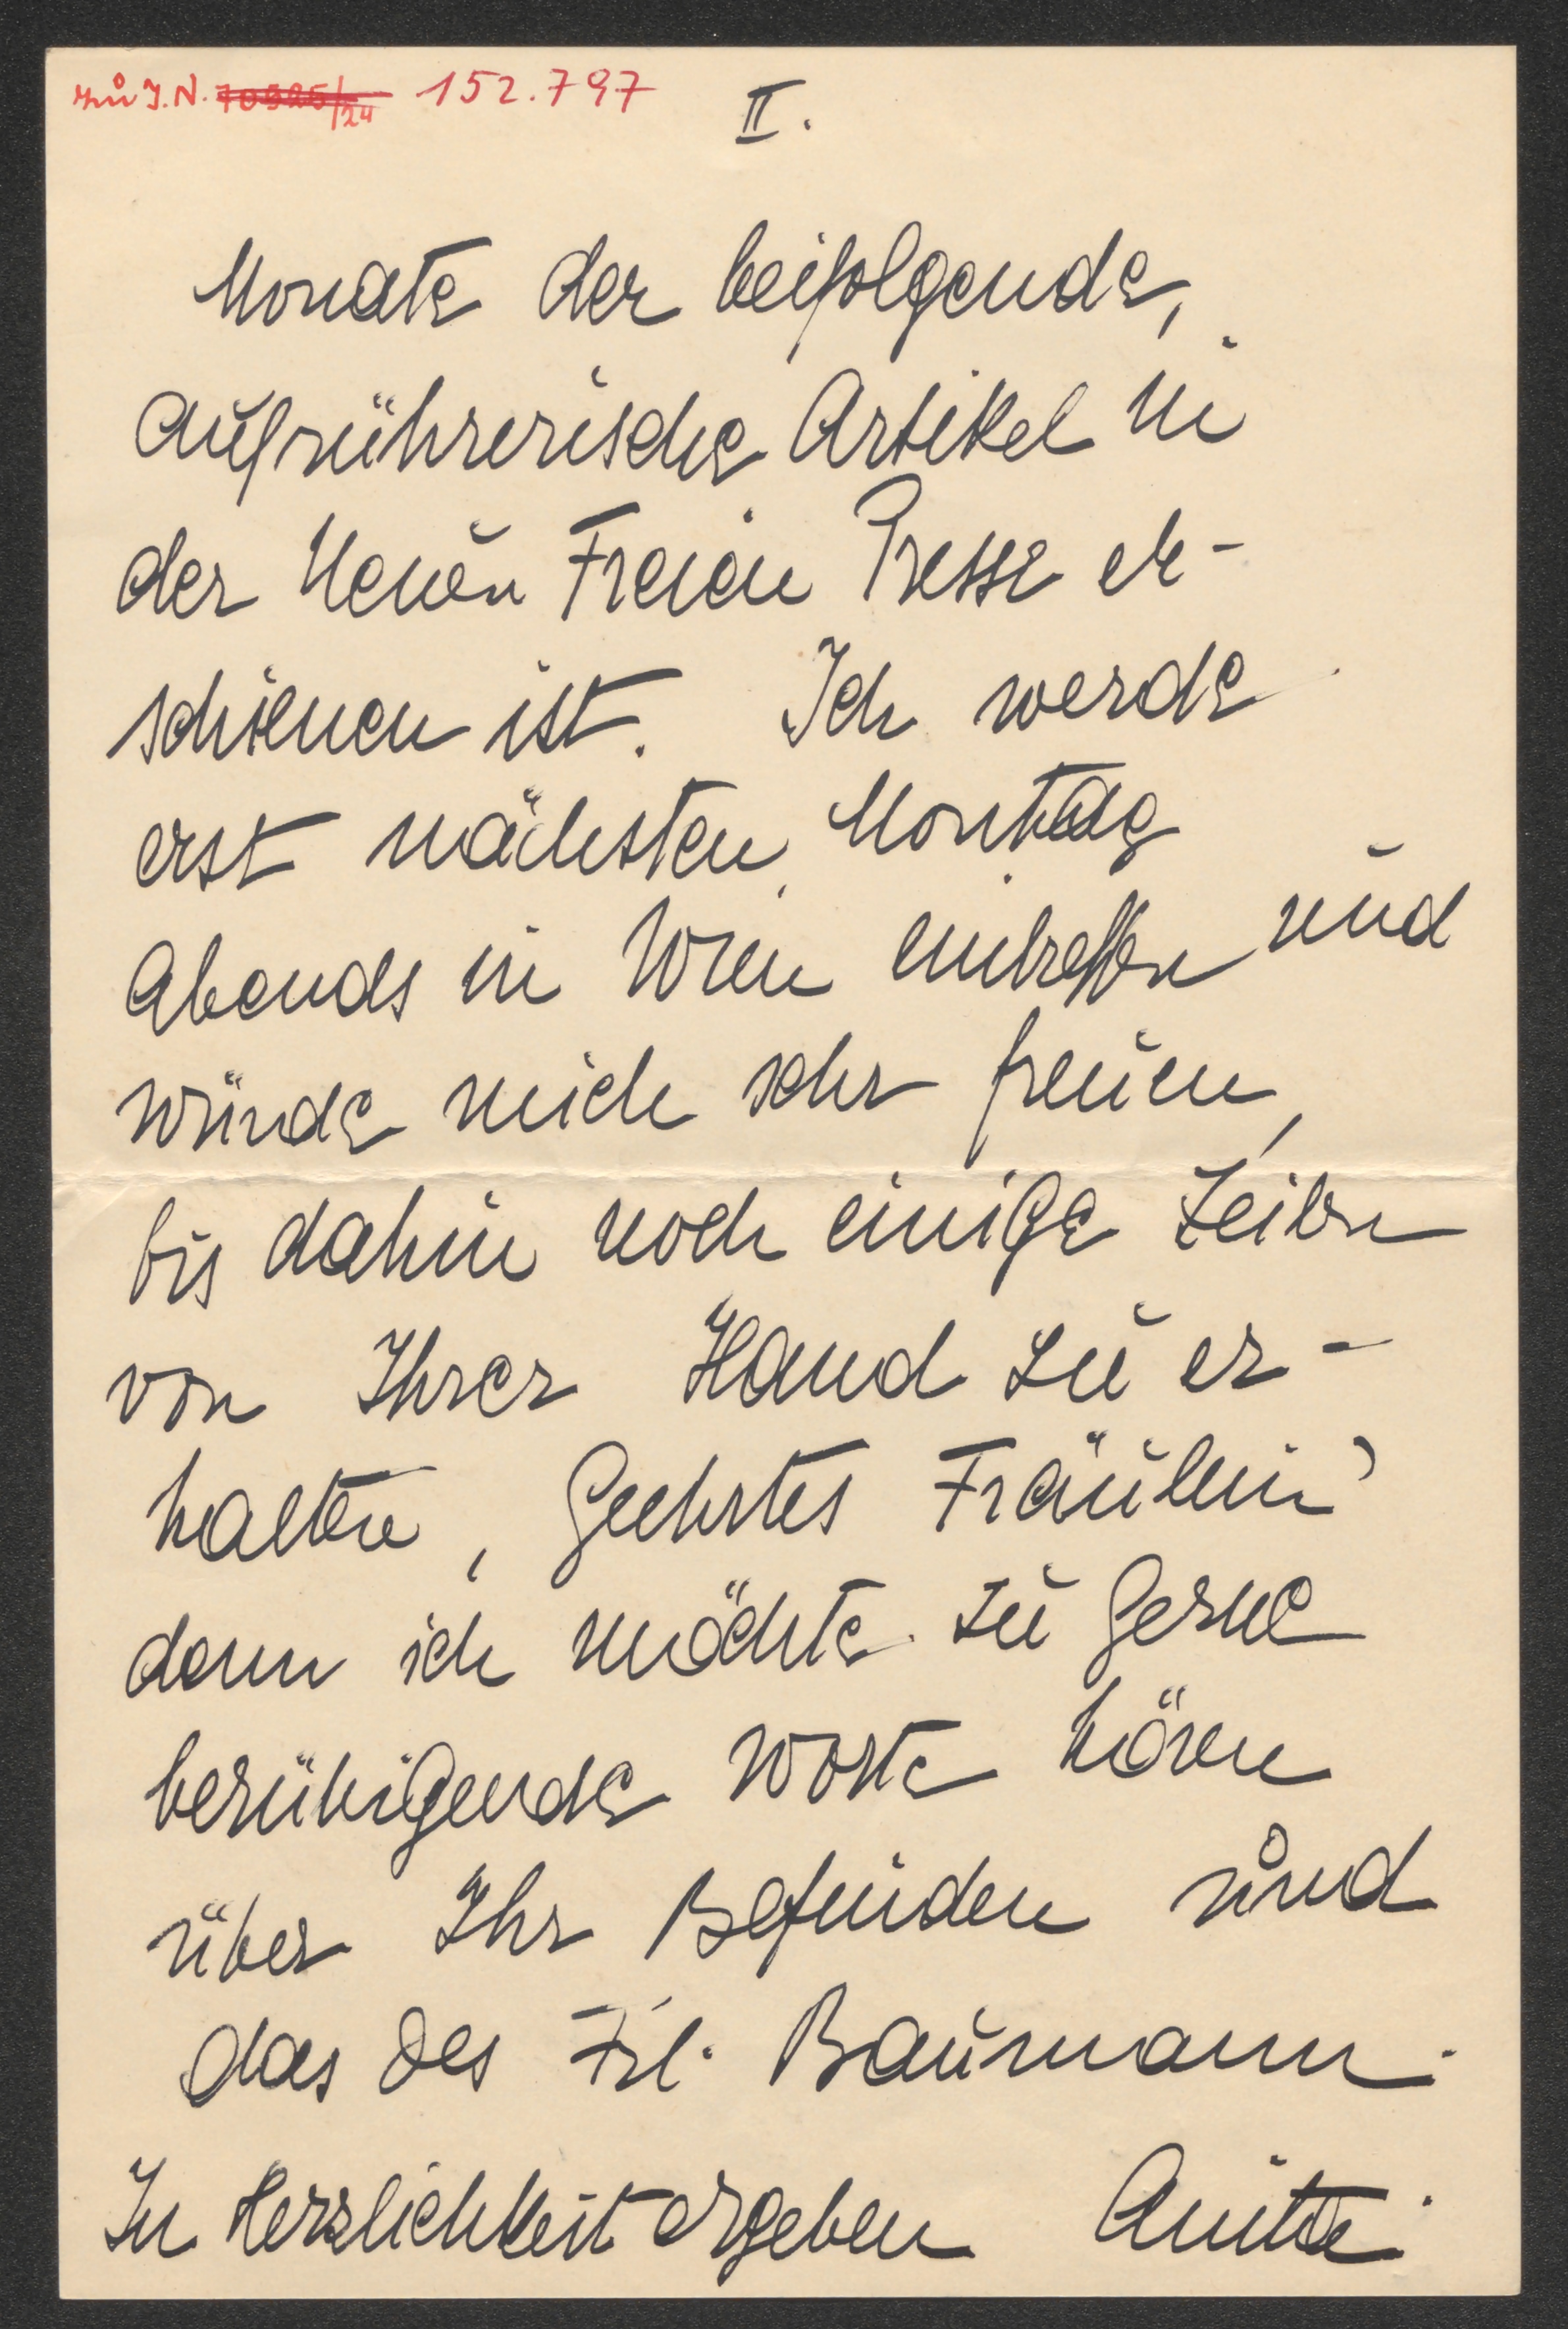 zu J.N. 70525/24 152.797
II.
Monate der beifolgende,
aufrührerische Artikel in
der Neuen Freien Presse er-
schienen ist. Ich werde
erst nächsten Montag
Abends in Wien eintreffen und
würde mich sehr freuen,
bis dahin noch einige Zeilen
von Ihrer Hand zu er-
halten, Geehrtes Fräulein,
denn ich möchte zu gerne
beruhigende Worte hören
über Ihr Befinden und
das des Frl. Baumann.
In Herzlichkeit ergeben Anitta.